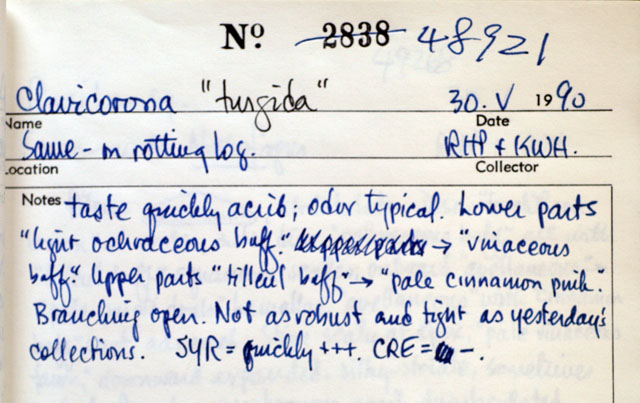 Nº 2838 48921
Clavicorona "turgida" 30. V 1990
Name Date
Same - on rotting log. RHP & KWH.
Location Collector
Notes taste quickly acrib; odor typical. Lower parts
"light ochraceous buff. → "vinaceous
buff" Upper parts "tilleul buff" → "pale cinnamon pink."
Branching open. Not as robust and tight as yesterday's
collections. SYR = quickly +++. CRE = -.